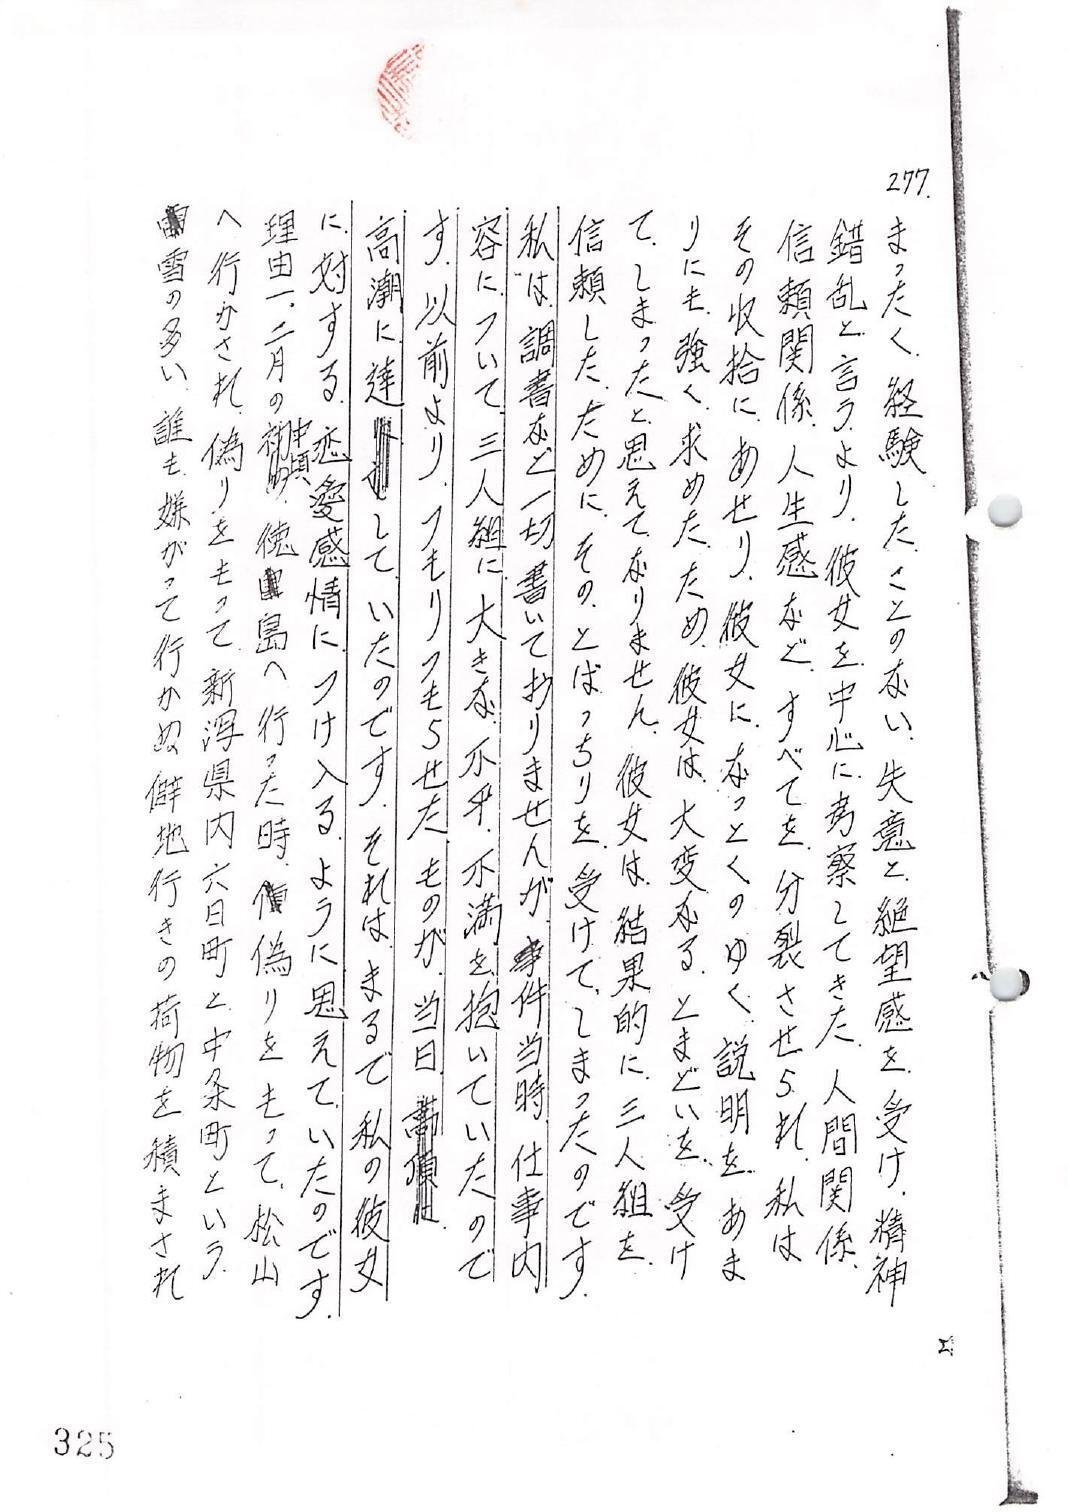 277.
まったく、経験した、ことのない、失意と、絶望感を、受け、精神
錯乱と、言うより、彼女を、中心に、考察してきた、人間関係、
信頼関係、人生感など、すべてを、分裂させられ、私は
その収拾に、あせり、彼女に、なっとくの、ゆく、説明を、あま
りにも、強く、求めた、ため、彼女は、大変なる、とまどいを、受け
て、しまったと、思えて、なりません、彼女は、結果的に、三人組を、
信頼した、ために、その、とばっちりを、受けて、しまったのです。
私は、調書など一切、書いておりませんが、事件当時、仕事内
容に、ついて、三人組に、大きな、不平、不満を、抱いていたので
す、以前より、つもりつもらせた、ものが、当日、
高潮に、達して、いたのです、それは、まるで、私の彼女
に、対する、恋愛感情に、つけ入る、ように、思えて、いたのです。
理由一、二月の中頃、徳島へ、行った時、偽りを、もって、松山
へ、行かされ、偽りを、もって、新潟県内、六日町と、中条町という、
雪の多い、誰も、嫌がって、行かぬ、僻地行きの、荷物を、積まされ
325